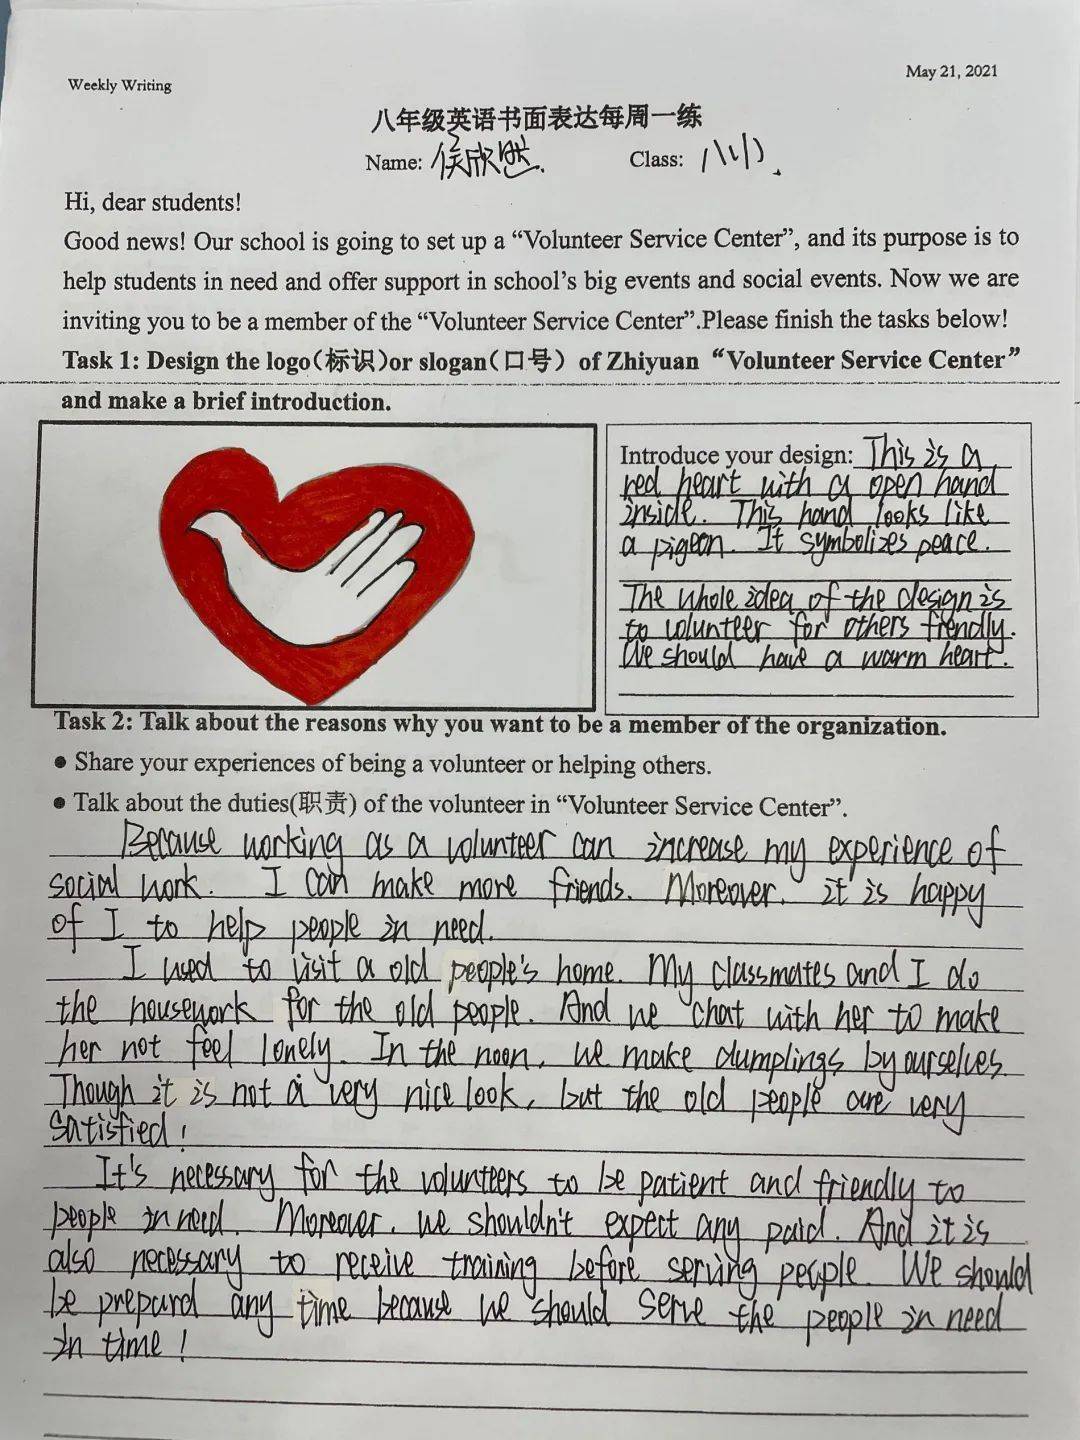 Weekly Writing
May 21, 2021
八年级英语书面表达每周一练
Name: 侯欣 Class: 八(1).
Hi, dear students!
Good news! Our school is going to set up a “Volunteer Service Center”, and its purpose is to
help students in need and offer support in school’s big events and social events. Now we are
inviting you to be a member of the “Volunteer Service Center”.Please finish the tasks below!
Task 1: Design the logo(标识)or slogan(口号) of Zhiyuan “Volunteer Service Center”
and make a brief introduction.
Introduce your design: This is a
red heart with a open hand
inside. This hand looks like
a pigeon. It symbolizes peace.
The whole idea of the design is
to volunteer for others friendly.
We should have a warm heart.
Task 2: Talk about the reasons why you want to be a member of the organization.
● Share your experiences of being a volunteer or helping others.
● Talk about the duties(职责) of the volunteer in “Volunteer Service Center”.
Because working as a volunteer can increase my experience of
social work. I can make more friends. Moreover, it is happy
of I to help people in need.
I used to visit a old people's home. My classmates and I do
the housework for the old people. And we chat with her to make
her not feel lonely. In the noon, we make dumplings by ourselves.
Though it is not a very nice look, but the old people are very
satisfied!
It's necessary for the volunteers to be patient and friendly to
people in need. Moreover, we shouldn't expect any paid. And it is
also necessary to receive training before serving people. We should
be prepard any time because we should serve the people in need
in time!